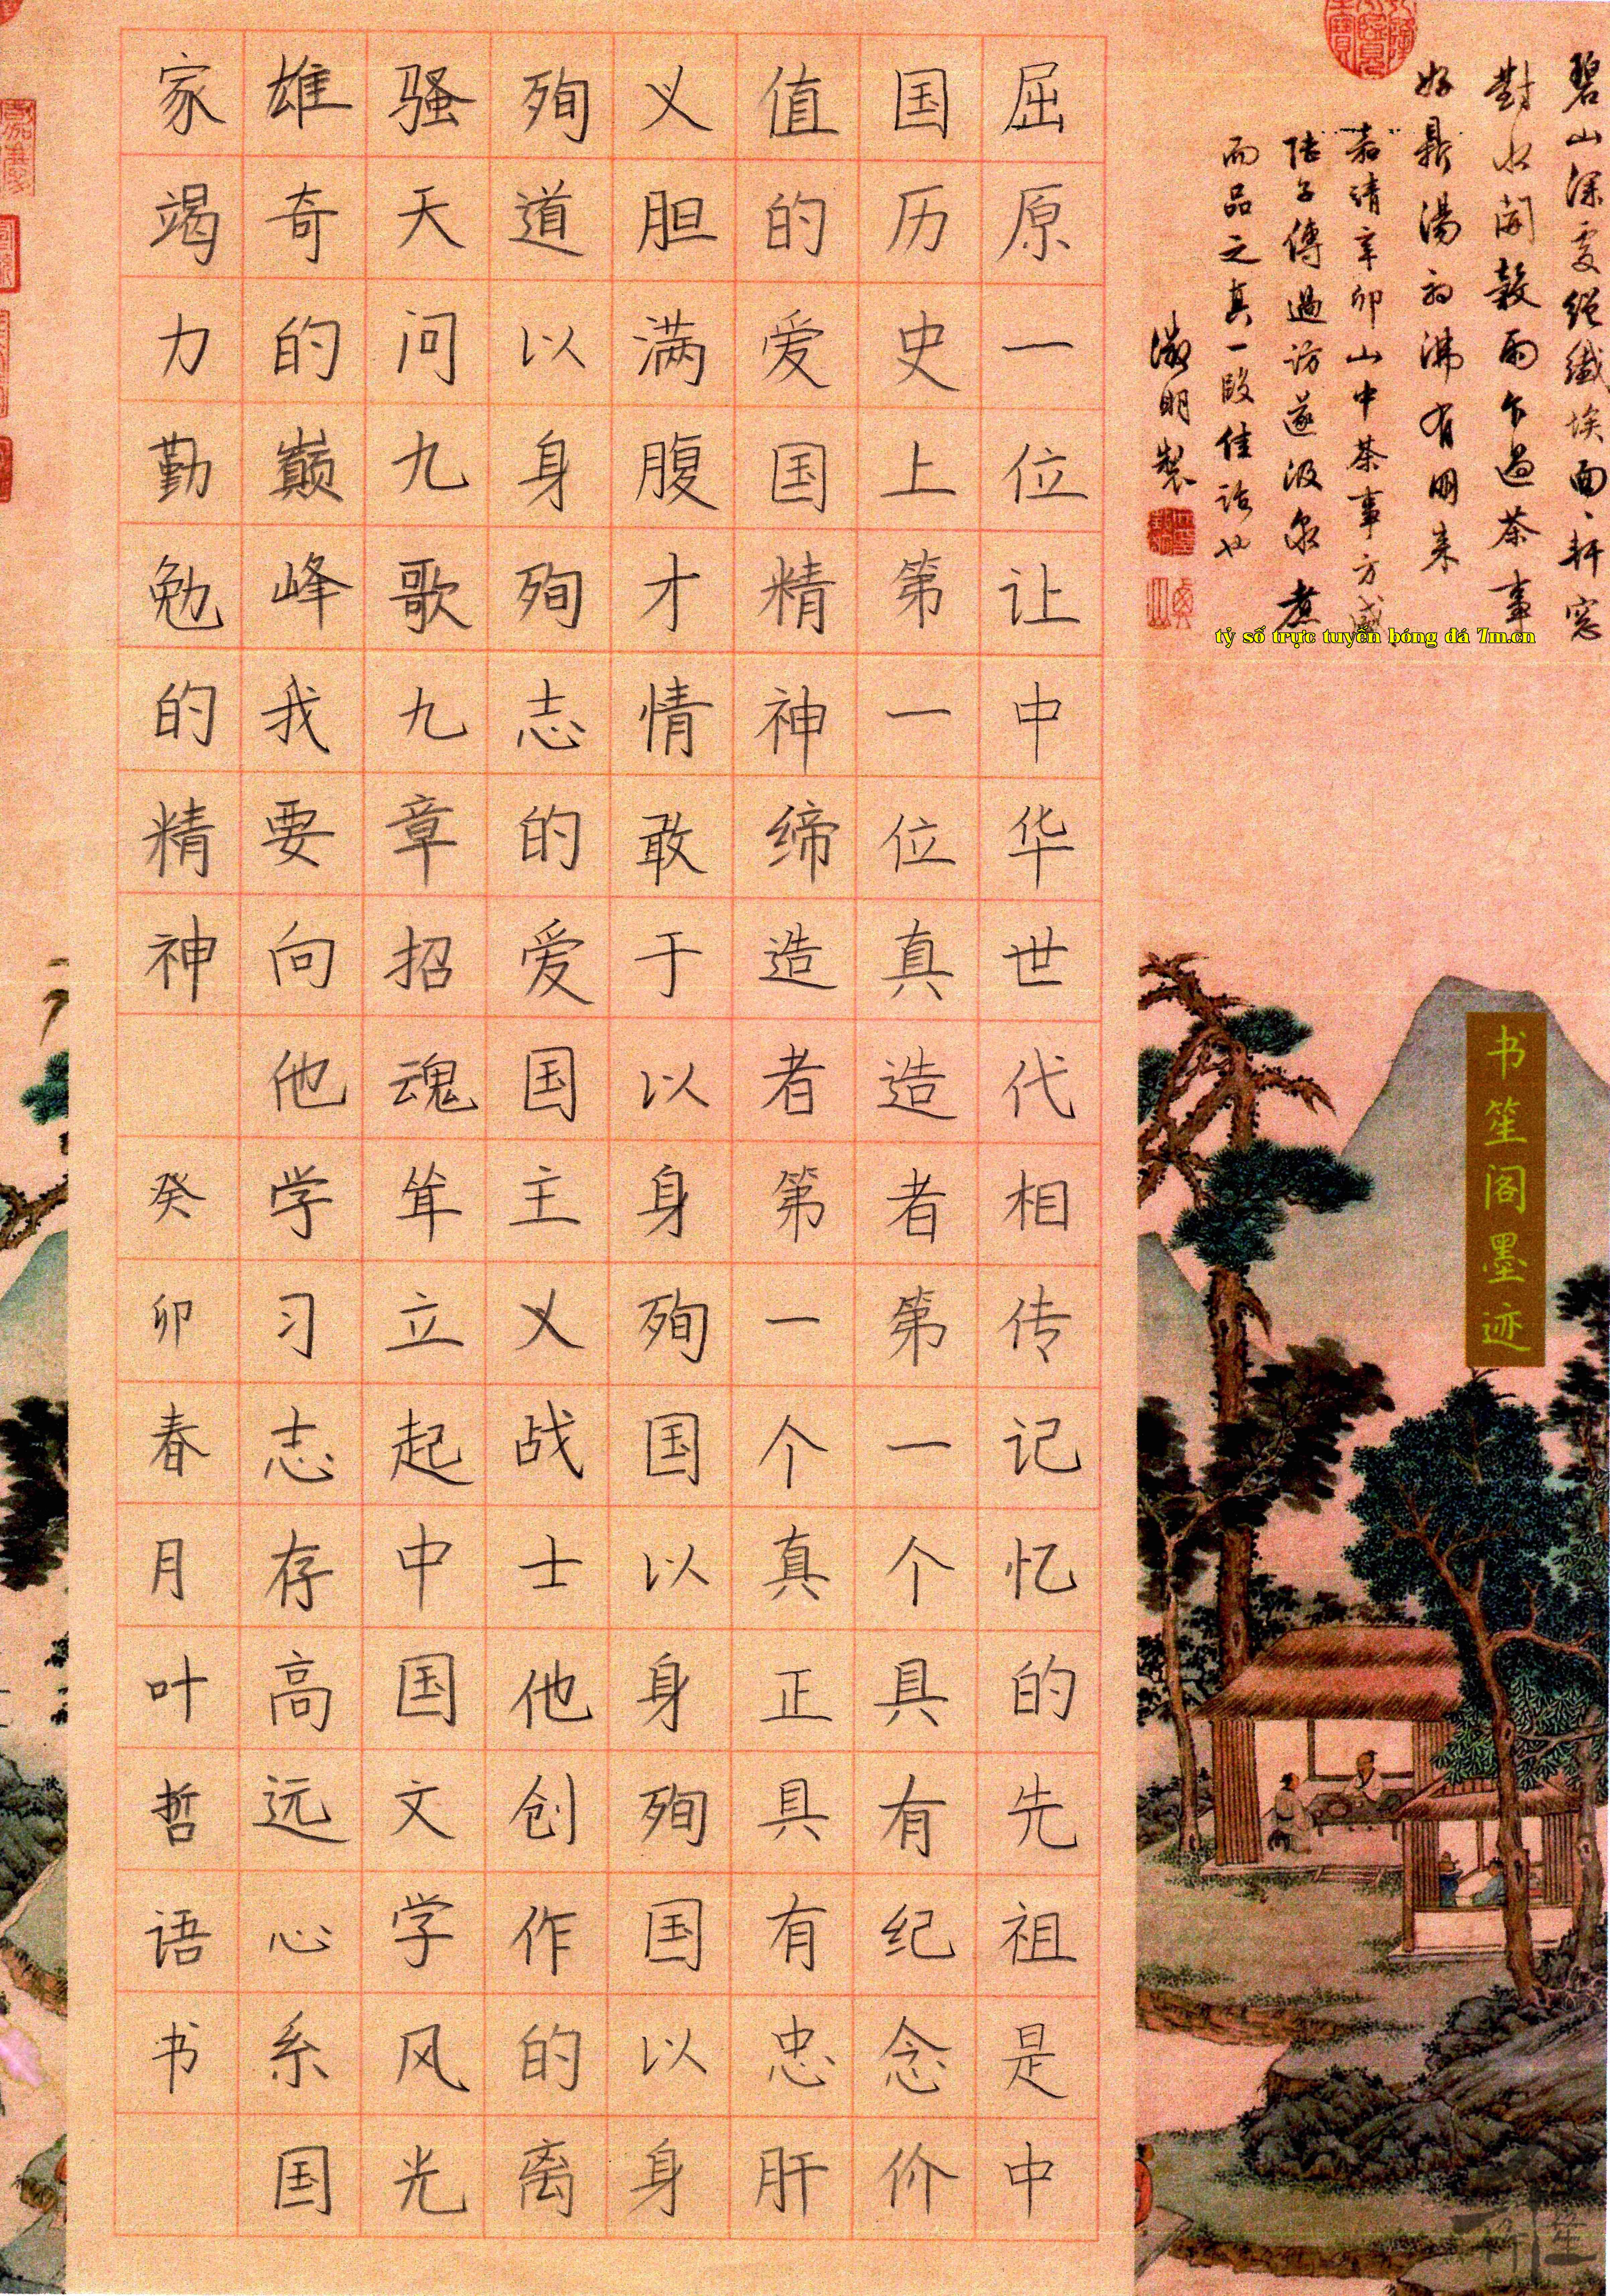 碧山深處絕纖埃面面軒窓
對水開穀雨乍過茶事
好鼎湯初沸有朋来
嘉靖辛卯山中茶事方盛
陸子傳過訪遂汲泉煮
而品之真一段佳話也
徵明製
tỷ số trực tuyến bóng đá 7m.cn
书笙阁墨迹
屈原一位让中华世代相传记忆的先祖是中
国历史上第一位真造者第一个具有纪念价
值的爱国精神缔造者第一个真正具有忠肝
义胆满腹才情敢于以身殉国以身殉国以身
殉道以身殉志的爱国主义战士他创作的离
骚天问九歌九章招魂耸立起中国文学风光
雄奇的巅峰我要向他学习志存高远心系国
家竭力勤勉的精神 癸卯春月叶哲语书